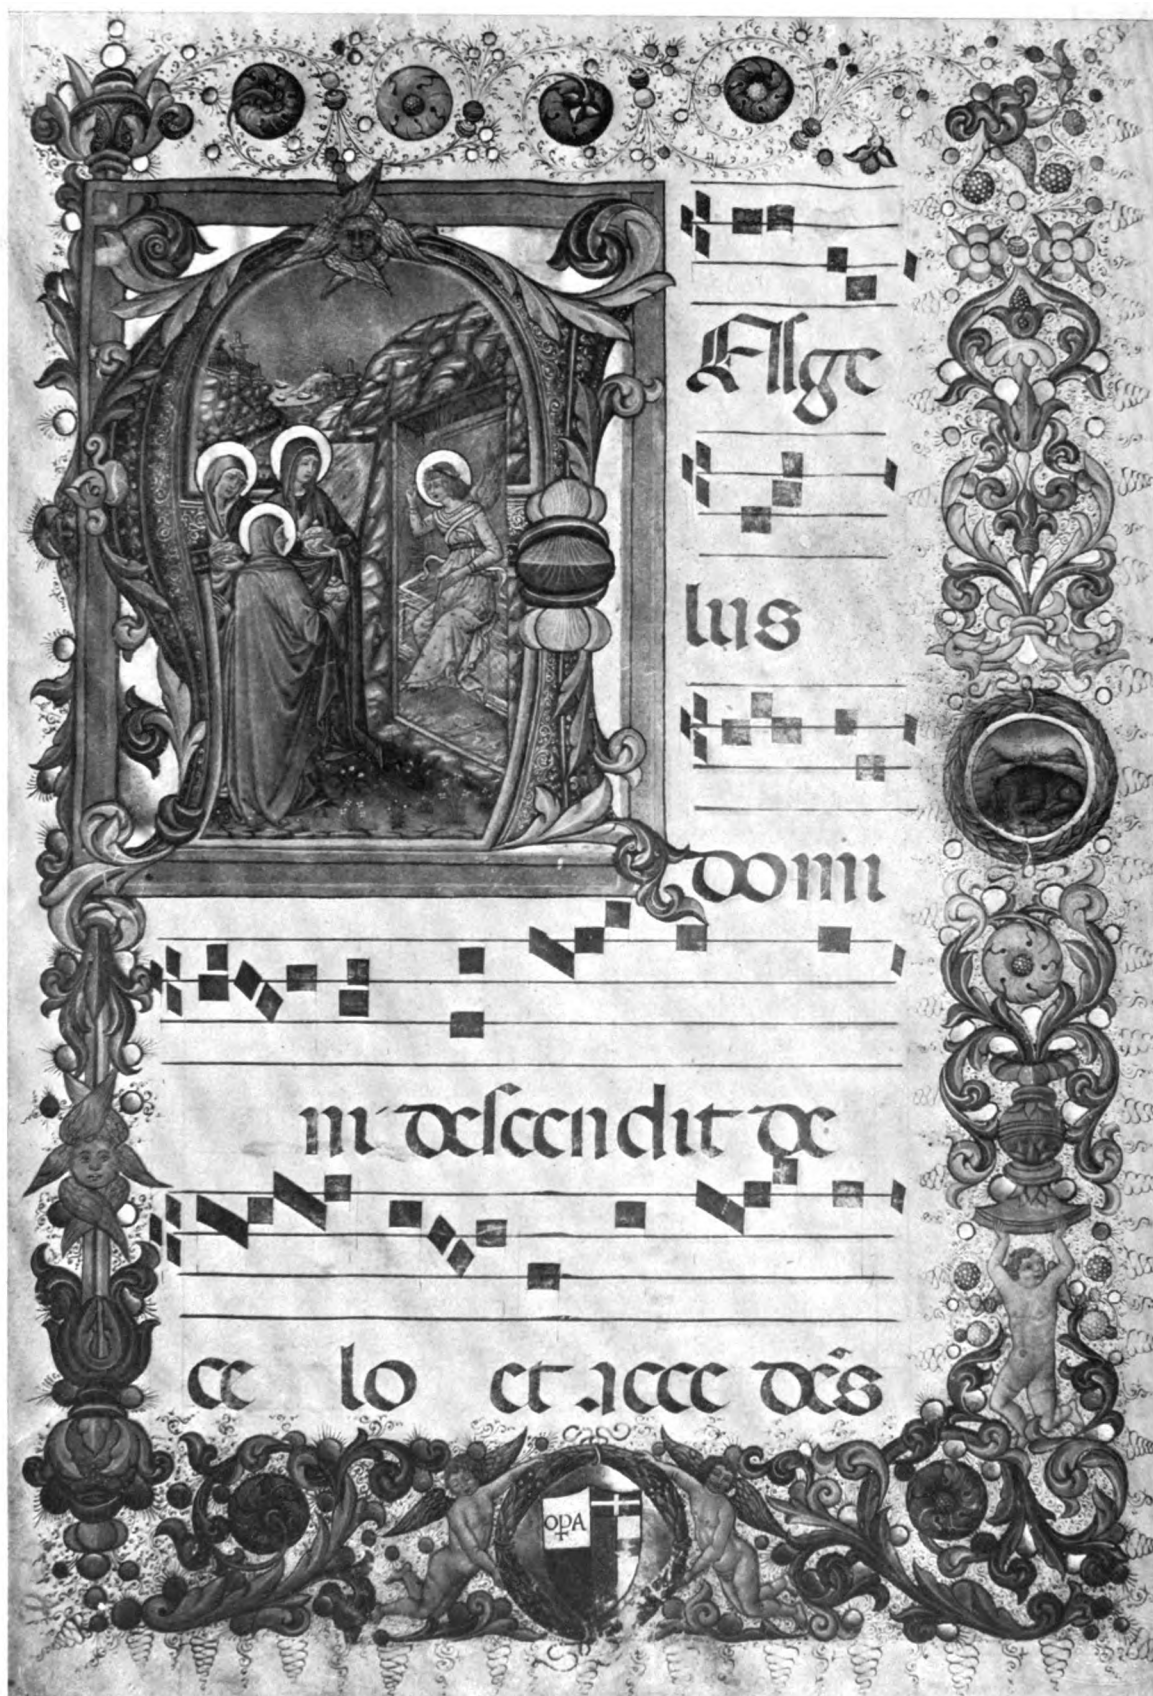 ANge
lus
domi
ni descendit de
ce lo et acce dēs
OPA